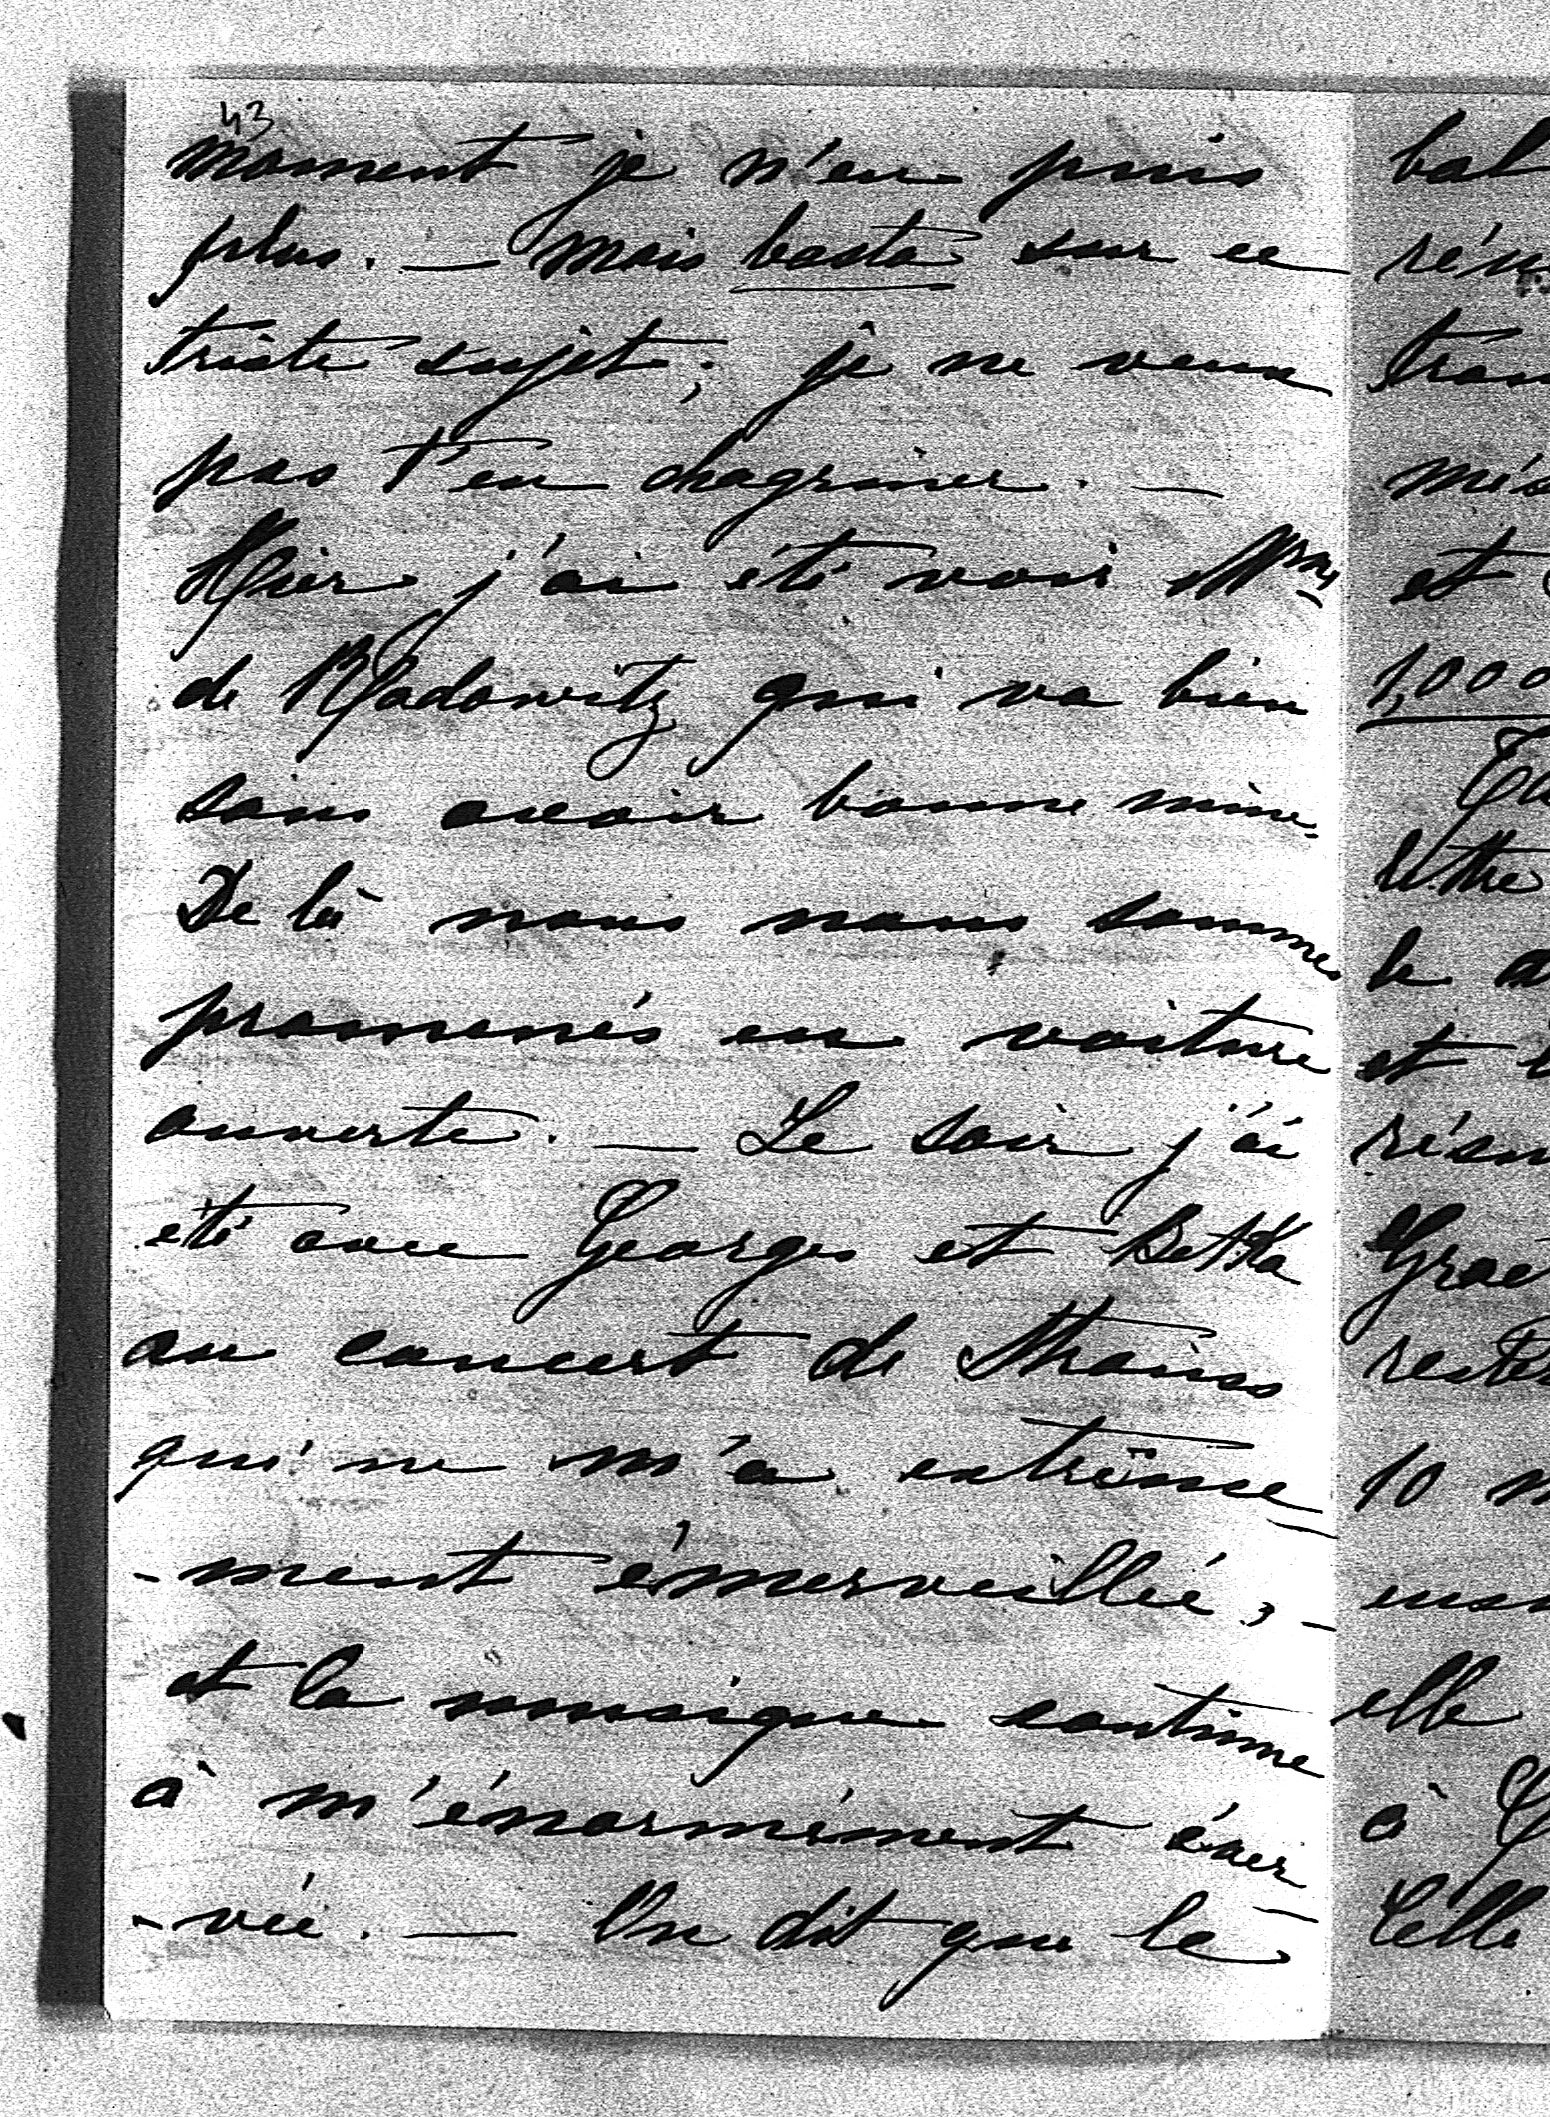 43
moment je n'en puis
plus. — mais basta sur ce
triste sujet; je ne veux
pas t'en chagriner. —
Hier j'ai été voir Mme
de Radowitz qui va bien
sans avoir bonne mine.
De là nous nous sommes
promenés en voiture
ouverte. — Le soir j'ai
été avec Georges et Bettka
au concert de Strauss
qui ne m'a extrême
-ment émerveillée, -
et la musique continue
à m'énormément éner
-vée. — On dit que le
bal
et
1,000
le
et
10
elle
à
Celle